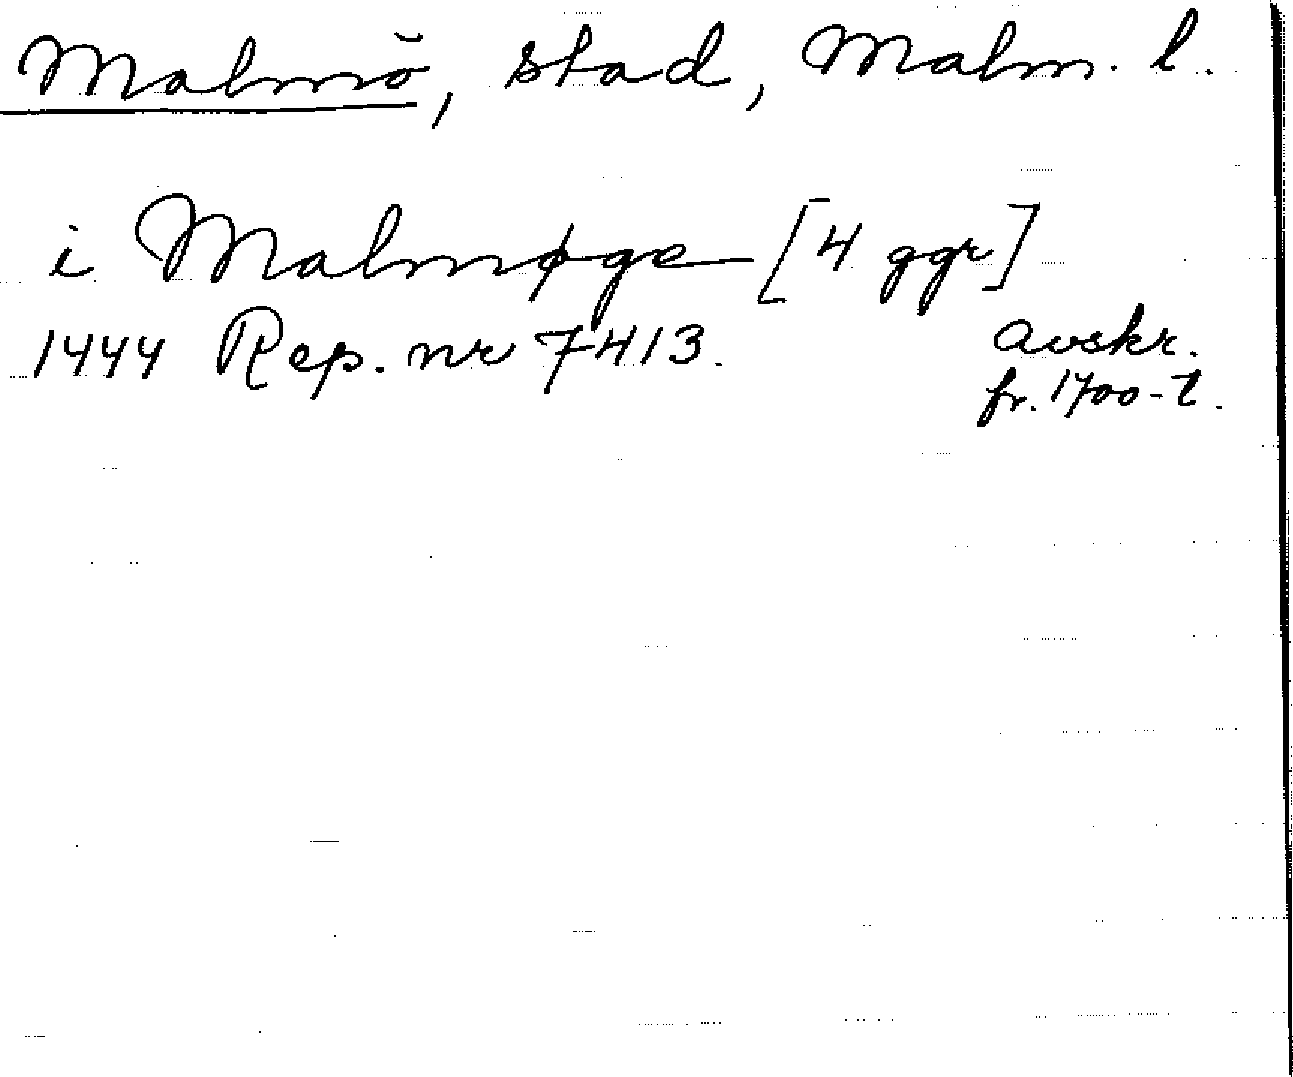 Malmö, stad, Malm. l.
i Malmøge [4 ggr]
1444 Rep. nr 7413. avskr.
fr. 1700-t.